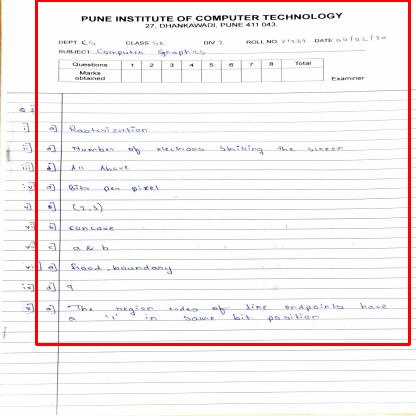 PUNE INSTITUTE OF COMPUTER TECHNOLOGY
27, DHANKAWADI, PUNE 411 043.
DEPT CS CLASS SE DIV 2 ROLL NO. 21232 DATE 04/02/20
SUBJECT Computer Graphics
Questions 1 2 3 4 5 6 7 8 Total
Marks obtained
Examiner
i) a] Rasterization
ii) d] Number of electrons striking the screen
iii) d] All Above
iv) a] Bits per pixel
v) b] (2,3)
vi) b] concave
vii) c] a & b
viii) a] flood, boundary
ix) d] 9
x) a] The region codes of line endpoints have
a '1' in same bit position